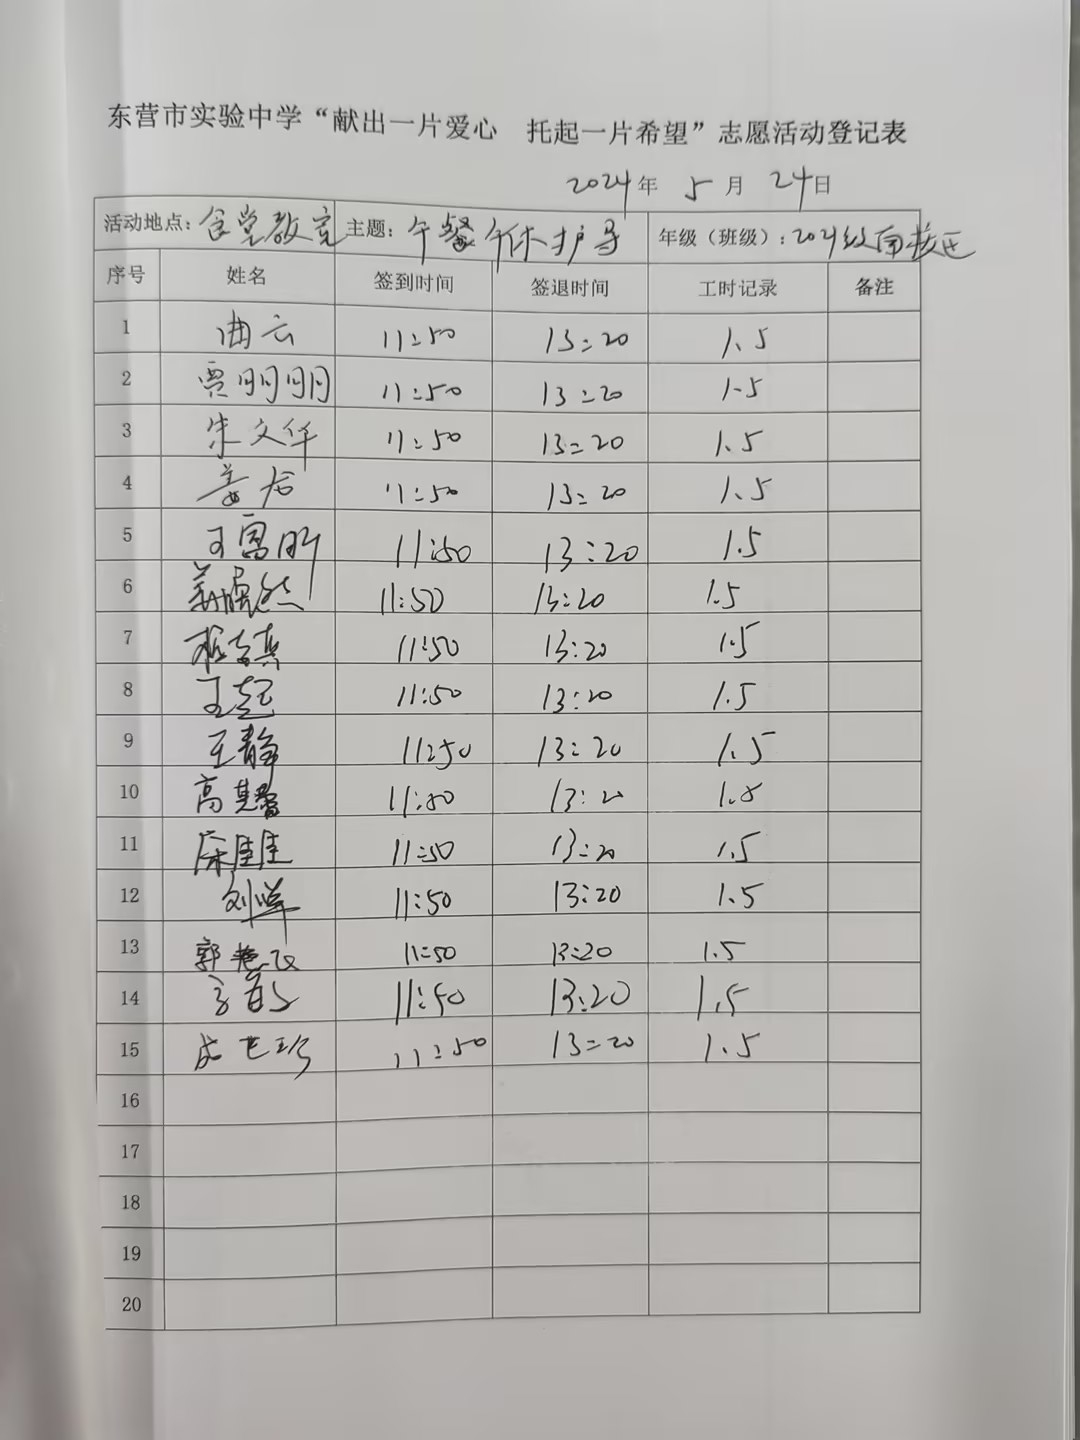 东营市实验中学“献出一片爱心 托起一片希望”志愿活动登记表
2024年 5月 24日
活动地点：食堂教室 主题：午餐午休护导 年级（班级）：2021级南校区
序号 姓名 签到时间 签退时间 工时记录 备注
1 曲云 11:50 13:20 1.5
2 贾明明 11:50 13:20 1.5
3 朱文华 11:50 13:20 1.5
4 姜龙 11:50 13:20 1.5
5 王富昕 11:50 13:20 1.5
6 11:50 13:20 1.5
7 11:50 13:20 1.5
8 王起 11:50 13:20 1.5
9 王静 11:50 13:20 1.5
10 高慧 11:50 13:20 1.5
11 佳佳 11:50 13:20 1.5
12 刘 11:50 13:20 1.5
13 郭 11:50 13:20 1.5
14 11:50 13:20 1.5
15 11:50 13:20 1.5
16
17
18
19
20